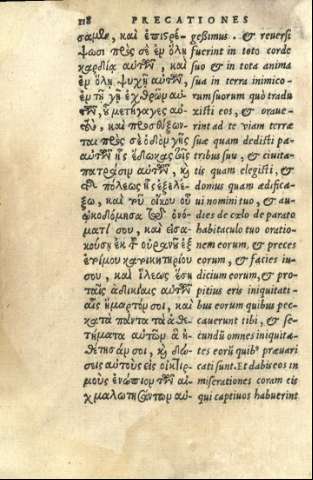 118 PRECATIONES
σαμεν, καὶ ἐπιστρέ-
ψωσι πρὸς σὲ ἐν ὅλῃ
καρδίᾳ αὐτῶν, καὶ
ἐν ὅλῃ ψυχῇ αὐτῶν,
ἐν τῇ γῇ ἐχθρῶν αὐ-
τῶν, οὗ μετήγαγες αὐ-
τοὺς, καὶ προσεύξον-
ται πρὸς σὲ ὁδὸν γῆς
αὐτῶν ἧς ἔδωκας τοῖς
πατράσιν αὐτῶν, καὶ
τῆς πόλεως ἧς ἐξελέ-
ξω, καὶ τοῦ οἴκου οὗ
ᾠκοδόμησα τῷ ὀνό-
ματί σου, καὶ εἰσα-
κούσῃ ἐκ τοῦ οὐρανοῦ ἐξ
ἑτοίμου κατοικητηρίου
σου, καὶ ἵλεως ἔσῃ
ταῖς ἀδικίαις αὐτῶν
αἷς ἥμαρτόν σοι, καὶ
κατὰ πάντα τὰ ἀθε-
τήματα αὐτῶν ἃ ἠ-
θέτησάν σοι, καὶ δώ-
σεις αὐτοὺς εἰς οἰκτιρ-
μοὺς ἐνώπιον τῶν αἰ-
χμαλωτευσάντων αὐ-
gessimus. & reuersi
fuerint in toto corde
suo & in tota anima
sua in terra inimico-
rum suorum quò tradu
xisti eos, & oraue-
rint ad te viam terræ
suæ quam dedisti pa-
tribus suis, & ciuita-
tis quam elegisti, &
domus quam ædifica-
ui nomini tuo, & au-
dies de cælo de parato
habitaculo tuo oratio-
nem eorum, & preces
eorum, & facies iu-
dicium eorum, & pro-
pitius eris iniquitati-
bus eorum quibus pec-
cauerunt tibi, & se-
cundū omnes iniquita-
tes eorū quibꝰ præuari
cati sunt. Et dabis eos in
miserationes coram eis
qui captiuos habuerint